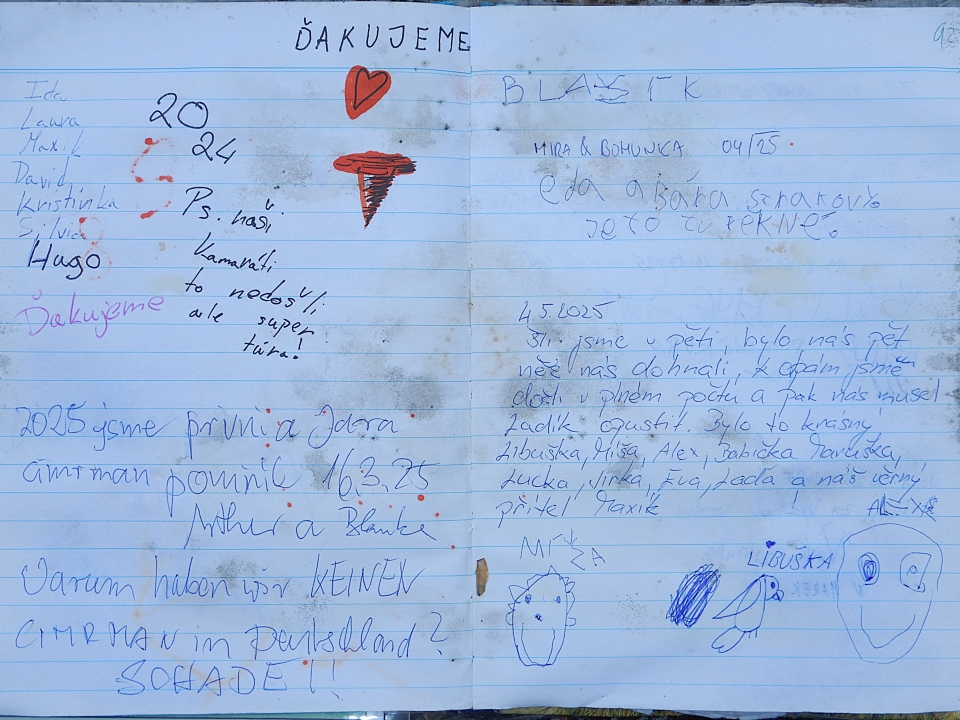 ĎAKUJEME
Ida
Laura
Maxik
David
Kristínka
Silvia
Hugo
Ďakujeme
20
24
Ps. naši
kamaráti
to nedošli
ale super
túra!
2025 jsme prvni a Jara
cimrman pomnik 16.3.25
Arthur a Blanka
Warum haben wir KEINEN
CIMRMAN in Deutschland?
SCHADE!!!
92
MIRA & BOHUNKA 04/25.
eda a Bára
JE TO TU PĚKNÉ.
4.5.2025
Šli jsme v pěti, bylo nás pět
než nás dohnali, k chpám jsme
došli v plném počtu a pak nás musel
Ladík opustit. Bylo to krásný
Libuška, Míša, Alex, Babička Maruška,
Lucka, Jirka, Eva, Laďa a náš věrný
přítel Maxík
ALEX
LIBUŠKA